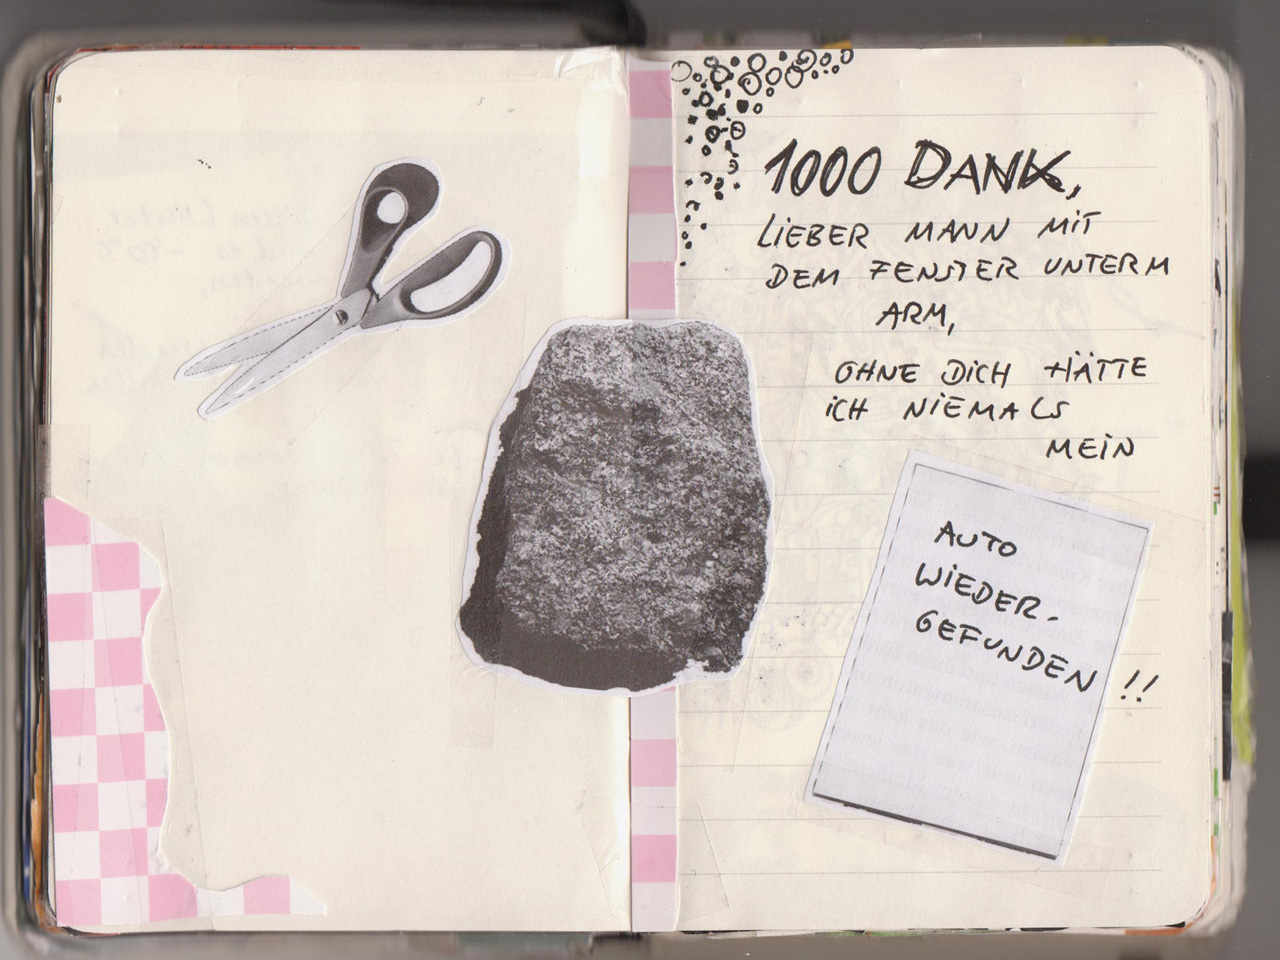 1000 DANK,
LIEBER MANN MIT
DEM FENSTER UNTERM
ARM,
OHNE DICH HÄTTE
ICH NIEMALS
MEIN
AUTO
WIEDER-
GEFUNDEN !!